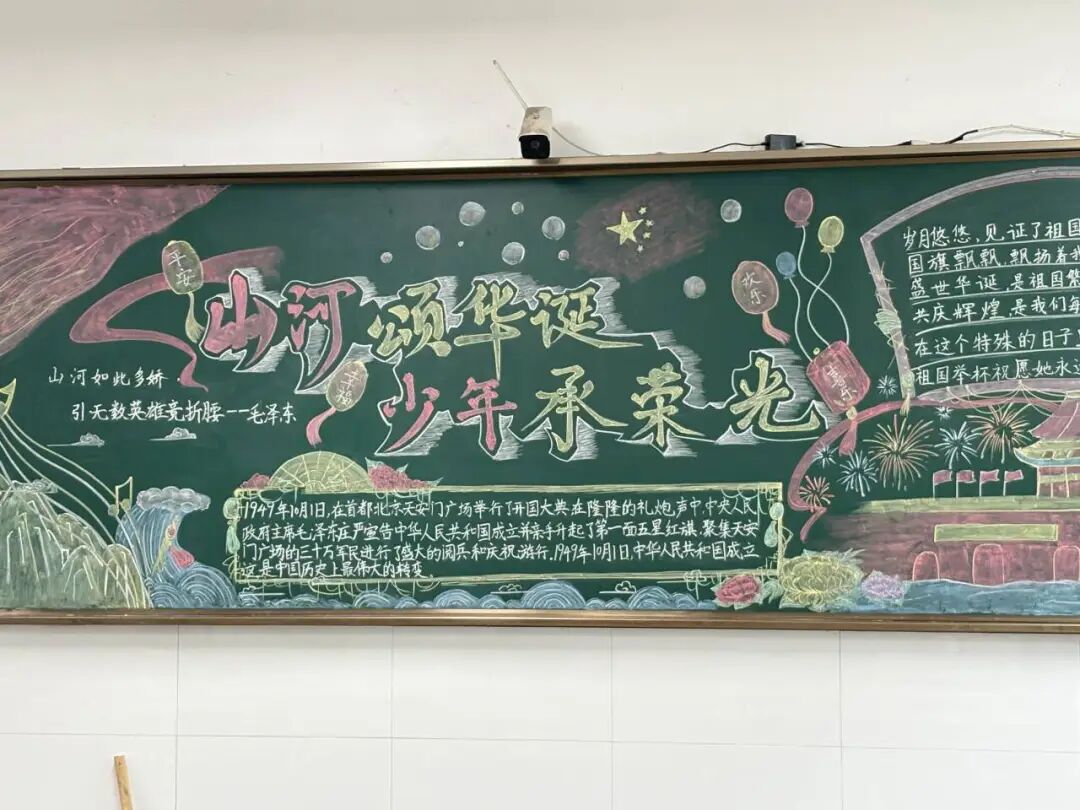 平安
山河颂华诞
欢乐
幸福
少年承荣光
喜乐
山河如此多娇.
引无数英雄竞折腰——毛泽东
1949年10月1日,在首都北京天安门广场举行了开国大典在隆隆的礼炮声中,中央人民
政府主席毛泽东庄严宣告中华人民共和国成立并亲手升起了第一面五星红旗.聚集天安
门广场的三十万军民进行了盛大的阅兵和庆祝游行.1949年10月1日,中华人民共和国成立
这是中国历史上最伟大的转变
岁月悠悠,见证了祖国
国旗飘飘,飘扬着我
盛世华诞,是祖国繁
共庆辉煌,是我们每
在这个特殊的日子
祖国举杯祝愿她永远